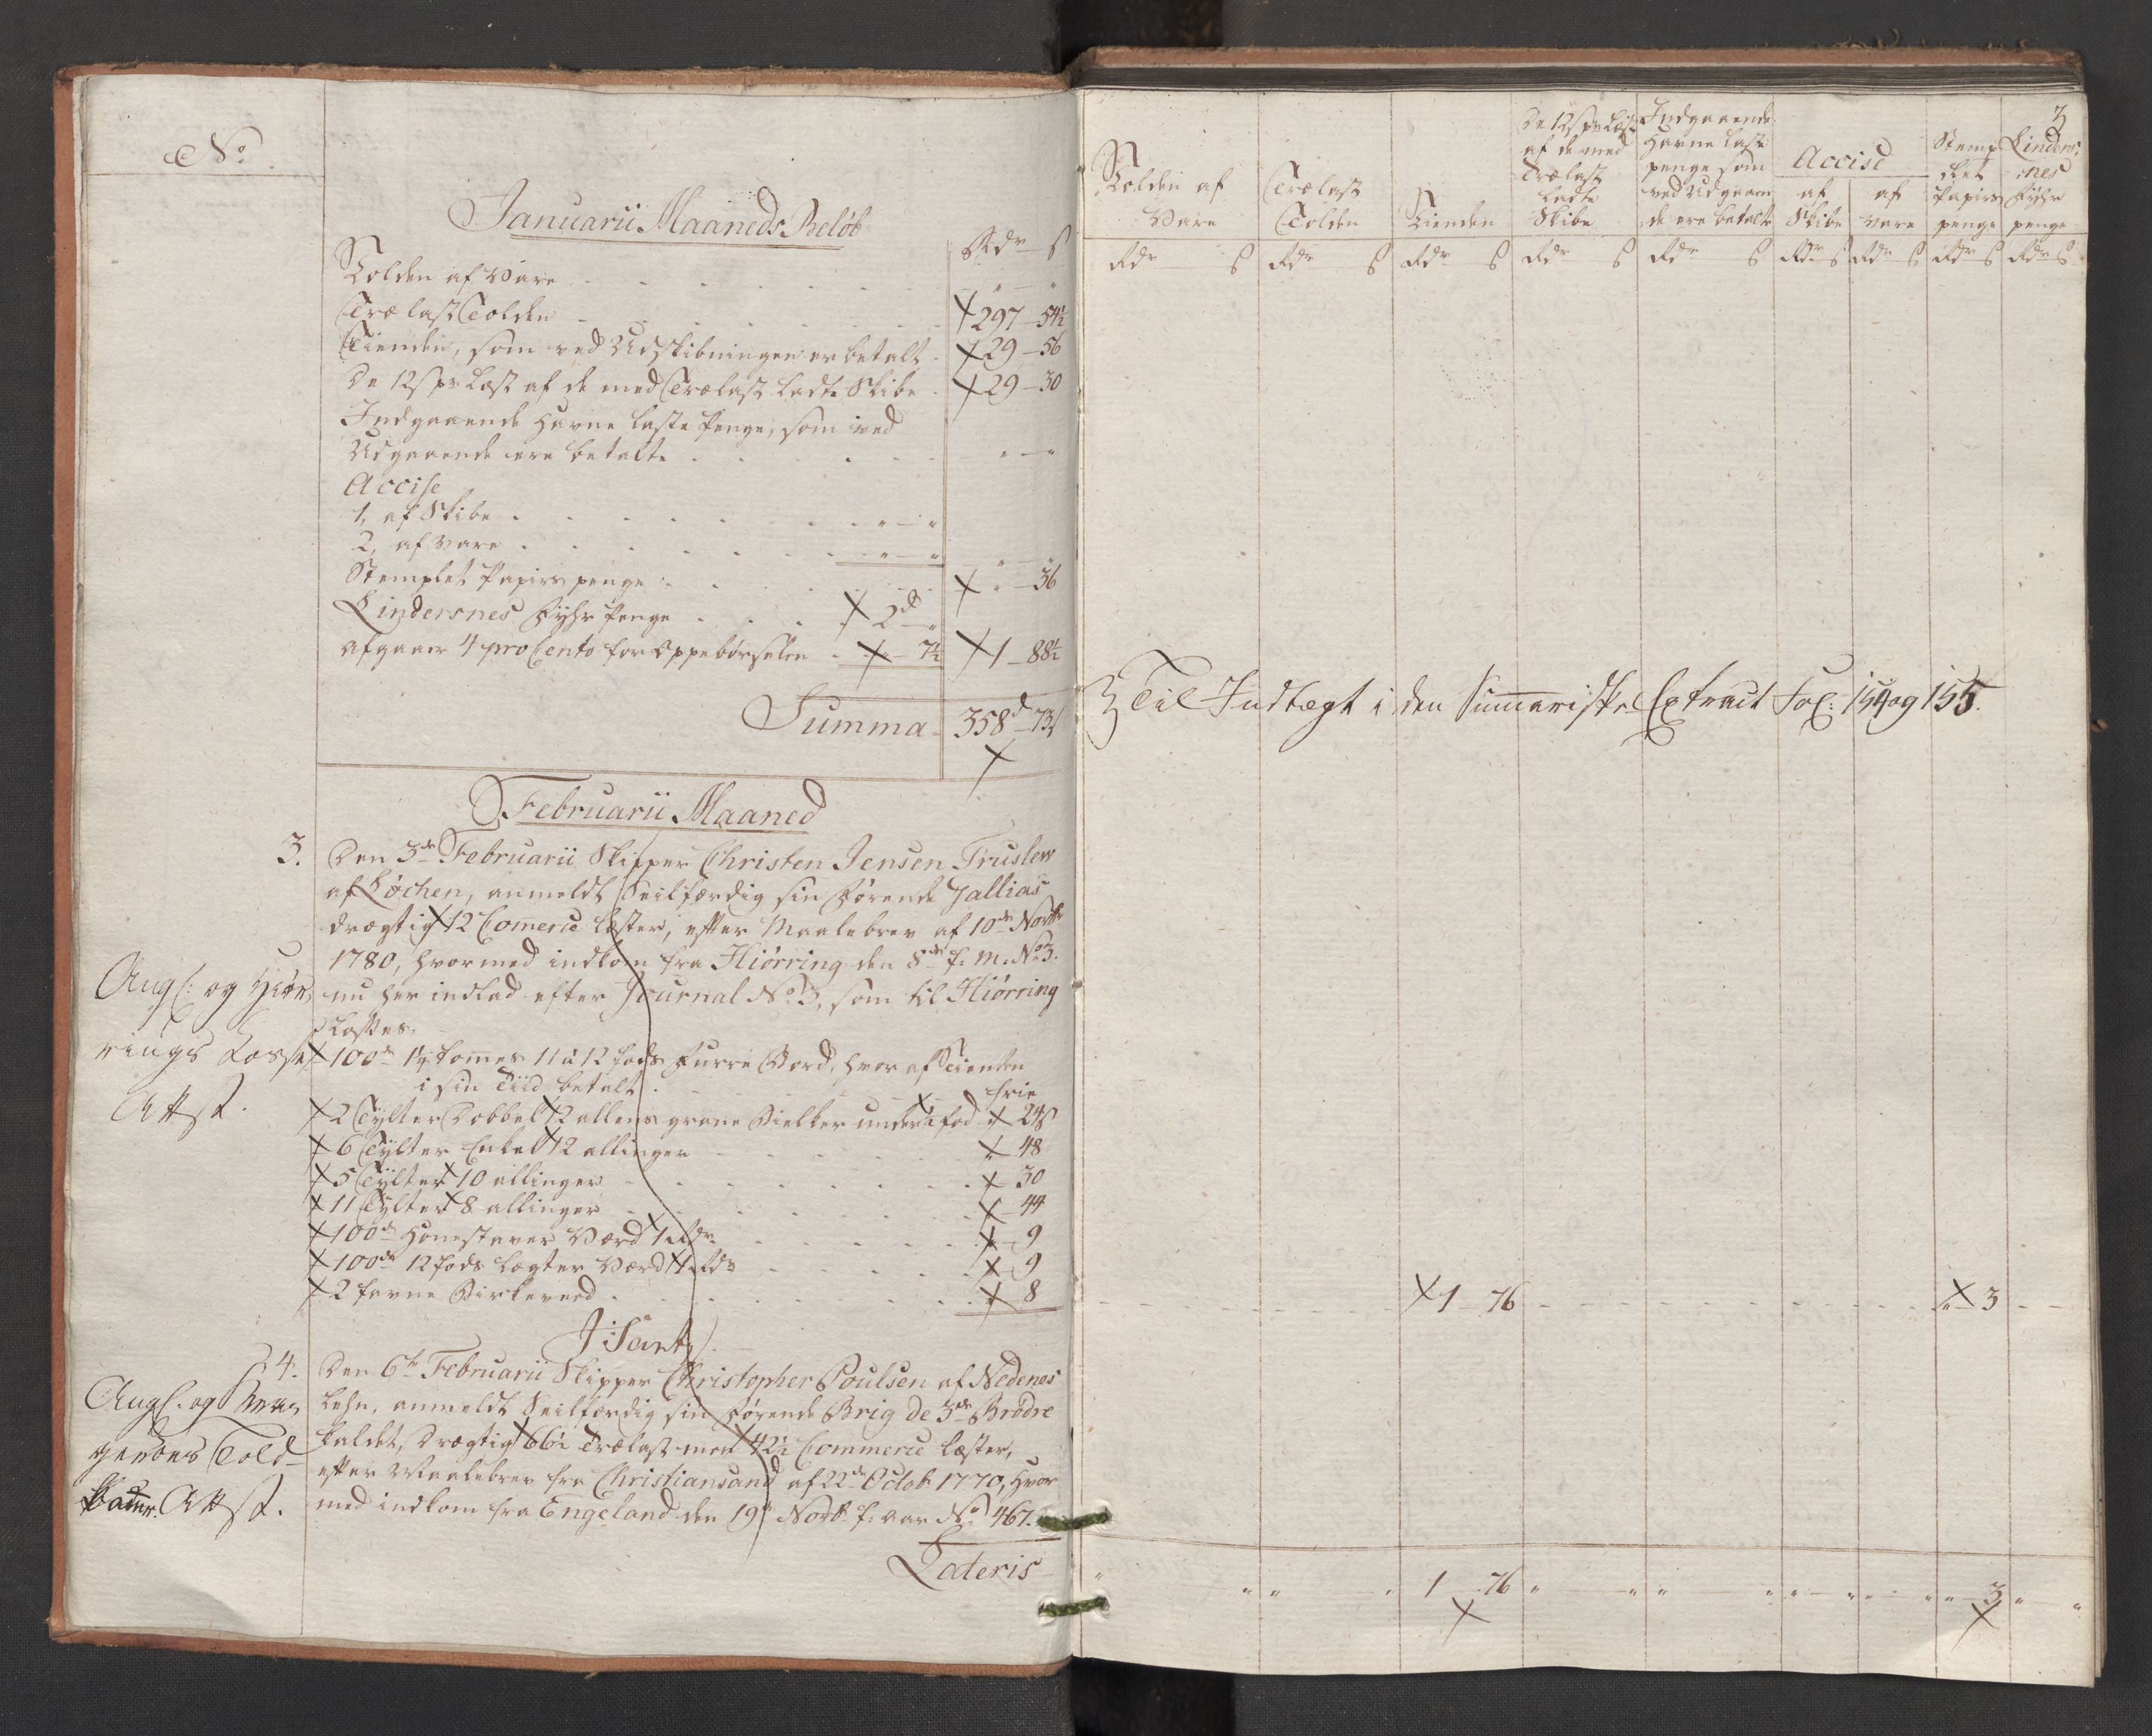 No
Januarii Maaneds Beløb
Rdr ß
Tolden af Vare " "
Trælast Tolden 297 - 54½
Tienden, som ved Udskibningen er betalt 29 - 56
De 12ß pr Læst af de med Trælast ladte Skibe 29 - 30
Indgaaende Havne Laste Penge, som ved
Udgaaende ere betalte " "
Accise
1, af Skibe " "
2, af Vare " "
" "
Stemplet Papiirs penge " - 36
Lindersnes Fyhr Penge 2d "
afgaaer 4 pro Cento for Oppebørselen 7½ 1 - 88½
Summa 358d - 73ß
Februarii Maaned
3. Den 3de Februarii Skipper Christen Jensen Truslew
af Løchen, anmeldt Seilfærdig sin førende Jallias
drægtig 12 Comerce Læster, efter Maalebrev af 10de Novbr
1780, hvormed indkom fra Hiørring den 8de f. M. No 3.
nu her indlad efter Journal No 3, som til Hiørring
losses.
Angl: og Hiør
rings Losse
Attst.
100de 1¼ tommes 11 à 12 fods Furre Bord, hvor af Tienden
i sin Tiid betalt frie
2 Tylter Dobbelt 12 allens grane Bielker under 1 fod 24ß
6 Tylter Enkelt 12 allinger 48
5 Tylter 10 allinger 30
11 Tylter 8 allinger 44
100de Honestaver Værd 1 Rdr 9
100de 12 fods Lægter Værd 1 Rdr 9
2 favne Birkeveed 8
J: Sant
4. Den 6te Februarii Skipper Christopher Poulsen af Nedenes
Lehn, anmeldt Seilfærdig sin førende Brig de 3de Brødre
kaldet, Drægtig 66½ Trælast men 42½ Commerce Læster,
efter Maalebrev fra Christiansand af 22de Octob: 1770, hvor
med indkom fra Engeland den 19de Novb: f: aar No 467.
Angl. og
Told
Attst.
Lateris
3
Tolden af Vare
Trælast Tolden
Tienden
De 12ß pr Læst af de med Trælast ladte Skibe
Indgaaende Havne Laste penge som ved Udgaaende ere betalte
Accise
af Skibe
af Vare
Stemplet Papiirs penge
Lindersnes Fyhr penge
Rdr ß Rdr ß Rdr ß Rdr ß Rdr ß Rdr ß Rdr ß Rdr ß Rdr ß
Til Indtægt i den Summariske Extract Fol: 154 og 155.
1 - 76 " 3
" " " " 1 76 " " " " " " " " " 3 " "